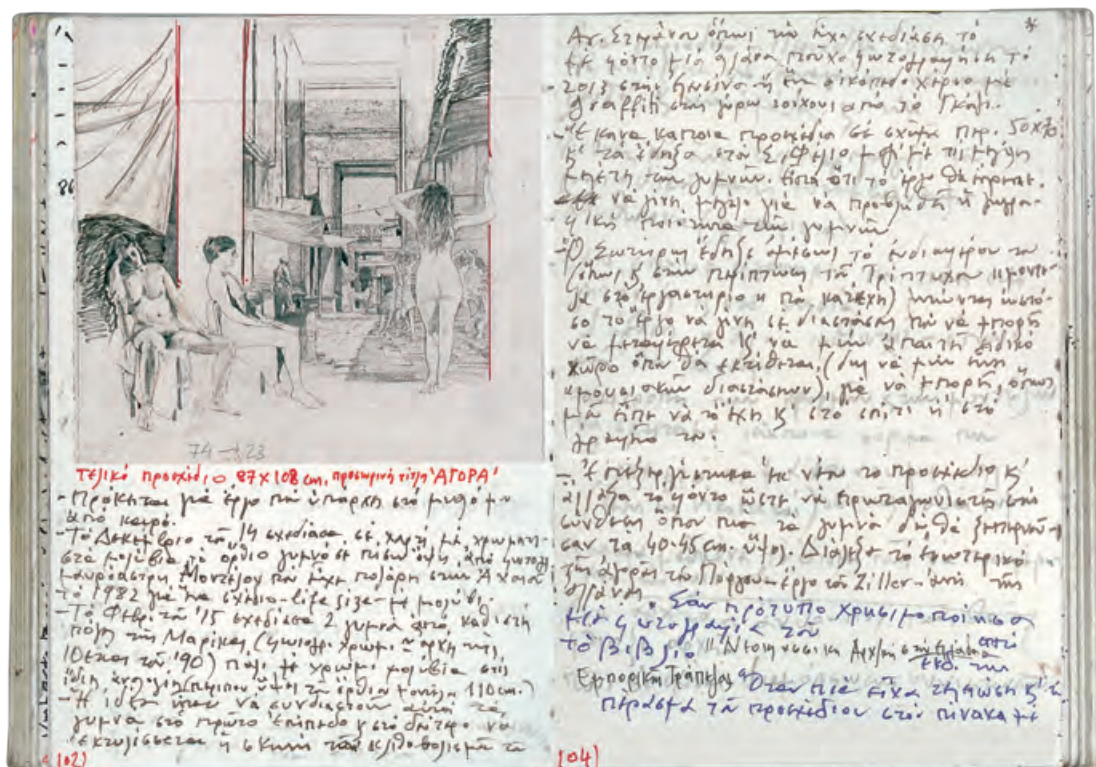 86
74 → 23
Τελικό προσχέδιο 87×108 cm, προσωρινή τίτλος 'ΑΓΟΡΑ'
- Πρόκηται γιά έργο πού υπάρχη στό μυαλό μου
από καιρό.
- Τό Δεκέμβριο τοῦ 14 σχεδίασα σέ χαρτί μέ χρωματι-
στά μολύβια τό όρθιο γυμνό σέ πίσω όψη, από φωτογ.
μαυρόασπρη, Μοντέλου πού είχε ποζάρη στήν Αχαΐα
τό 1982 γιά ένα σχέδιο-life size-μέ μολύβι.
- Τό Φεβρ. τοῦ '15 σχεδίασα 2 γυμνά από καθιστή
πόζα τής Μαρίκας (φωτογρ. χρωμ. αρχή τής
10ετίας τοῦ '90) πάλι μέ χρωμ. μολύβια στίς
ίδιες (περίπου ύψος τά όρθια μοντέλα 110cm.)
- Η ιδέα ήταν νά συνδιαστούν αυτά τά
γυμνά στό πρώτο επίπεδο κ στό δεύτερο νά
εκτυλίσσεται η σκηνή τοῦ λιθοβολισμοῦ τοῦ
102)
Αγ. Στεφάνου όπως τήν είχα σχεδιάση τό
μέ φόντο μιά πού'χα φωτογραφήση τό
2013 στήν Ελευσίνα ή ένα οικόπεδο μέ
graffiti στή γύρω τοίχους από τό Γκάζι.
- Έκηνα κάποια προσχέδια σέ σχήμα περ. 50×70
κ' τά έδηξα στό Σ. Φέλιο, μαζί μέ τίς μεγάλη
μελέτη τῶν γυμνῶν. είπα ότι τό έργο θά έπρεπε
νά γίνη μεγάλο γιά νά προβληθῆ η ζωγρα-
φική ποιότητα τῶν γυμνῶν
- Ο Σωτήρης έδηξε αμέσως τό ενδιαφέρον του
(όπως κ στήν περίπτωση τοῦ Τρίπτυχου "μοντέ-
λα στό εργαστήριο" πού κατέχη) ωστό-
σο τό έργο νά γίνη σέ διαστάσεις πού νά μπορῆ
νά μεταφέρεται κ νά μήν απαιτῆ ειδικό
χώρο όπου θά εκτίθεται, (δηλ νά μήν είναι
μουσειακῶν διαστάσεων), γιά νά μπορῆ, όπως
μοῦ είπε νά τό έχη κ' στό σπίτι ή στό
γραφείο του.
- Επεξεργάστηκα έκ νέου τό προσχέδιο κ'
άλλαξα τό φόντο ώστε νά πρωταγωνιστῆ στή
σύνθεση όπου πιά τά γυμνά δέν θά ξεπερνοῦ-
σαν τά 40-45cm. ύψος. Διάλεξα τό εσωτερικό
τῆς αγορᾶς τοῦ Πύργου-έργο τοῦ Ziller- τῆς
Σάν πρότυπο χρησιμοποίησα
μιά φωτογραφία τοῦ από
τό βιβλίο "Νεοκλασσική Αρχ/κή στήν Ελλάδα" εκδ. τῆς
Εμπορικῆς Τράπεζας. Όταν πιά είχα τελειώση κ' τό
πέρασμα τοῦ προσχεδίου στόν πίνακα μέ
104)